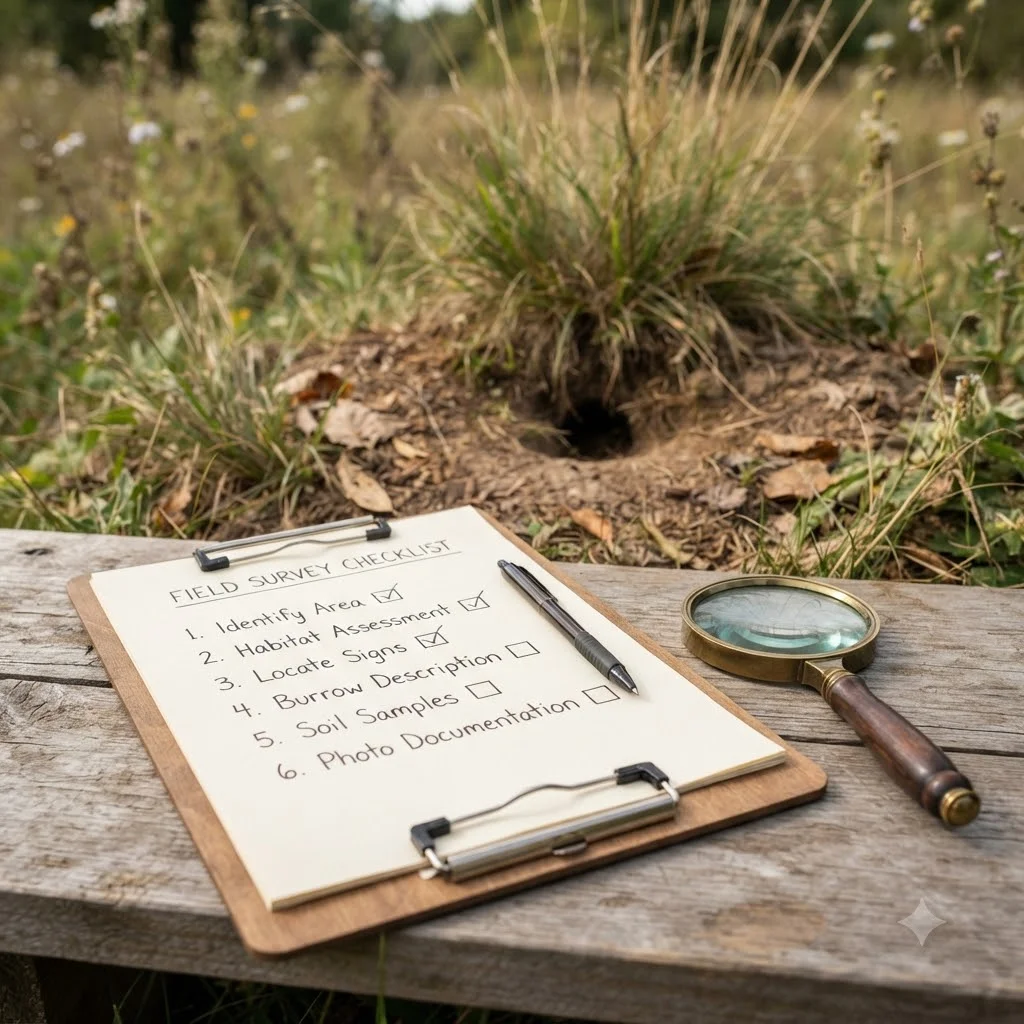 FIELD SURVEY CHECKLIST
1. Identify Area ☑
2. Habitat Assessment ☑
3. Locate Signs ☑
4. Burrow Description ☐
5. Soil Samples ☐
6. Photo Documentation ☐